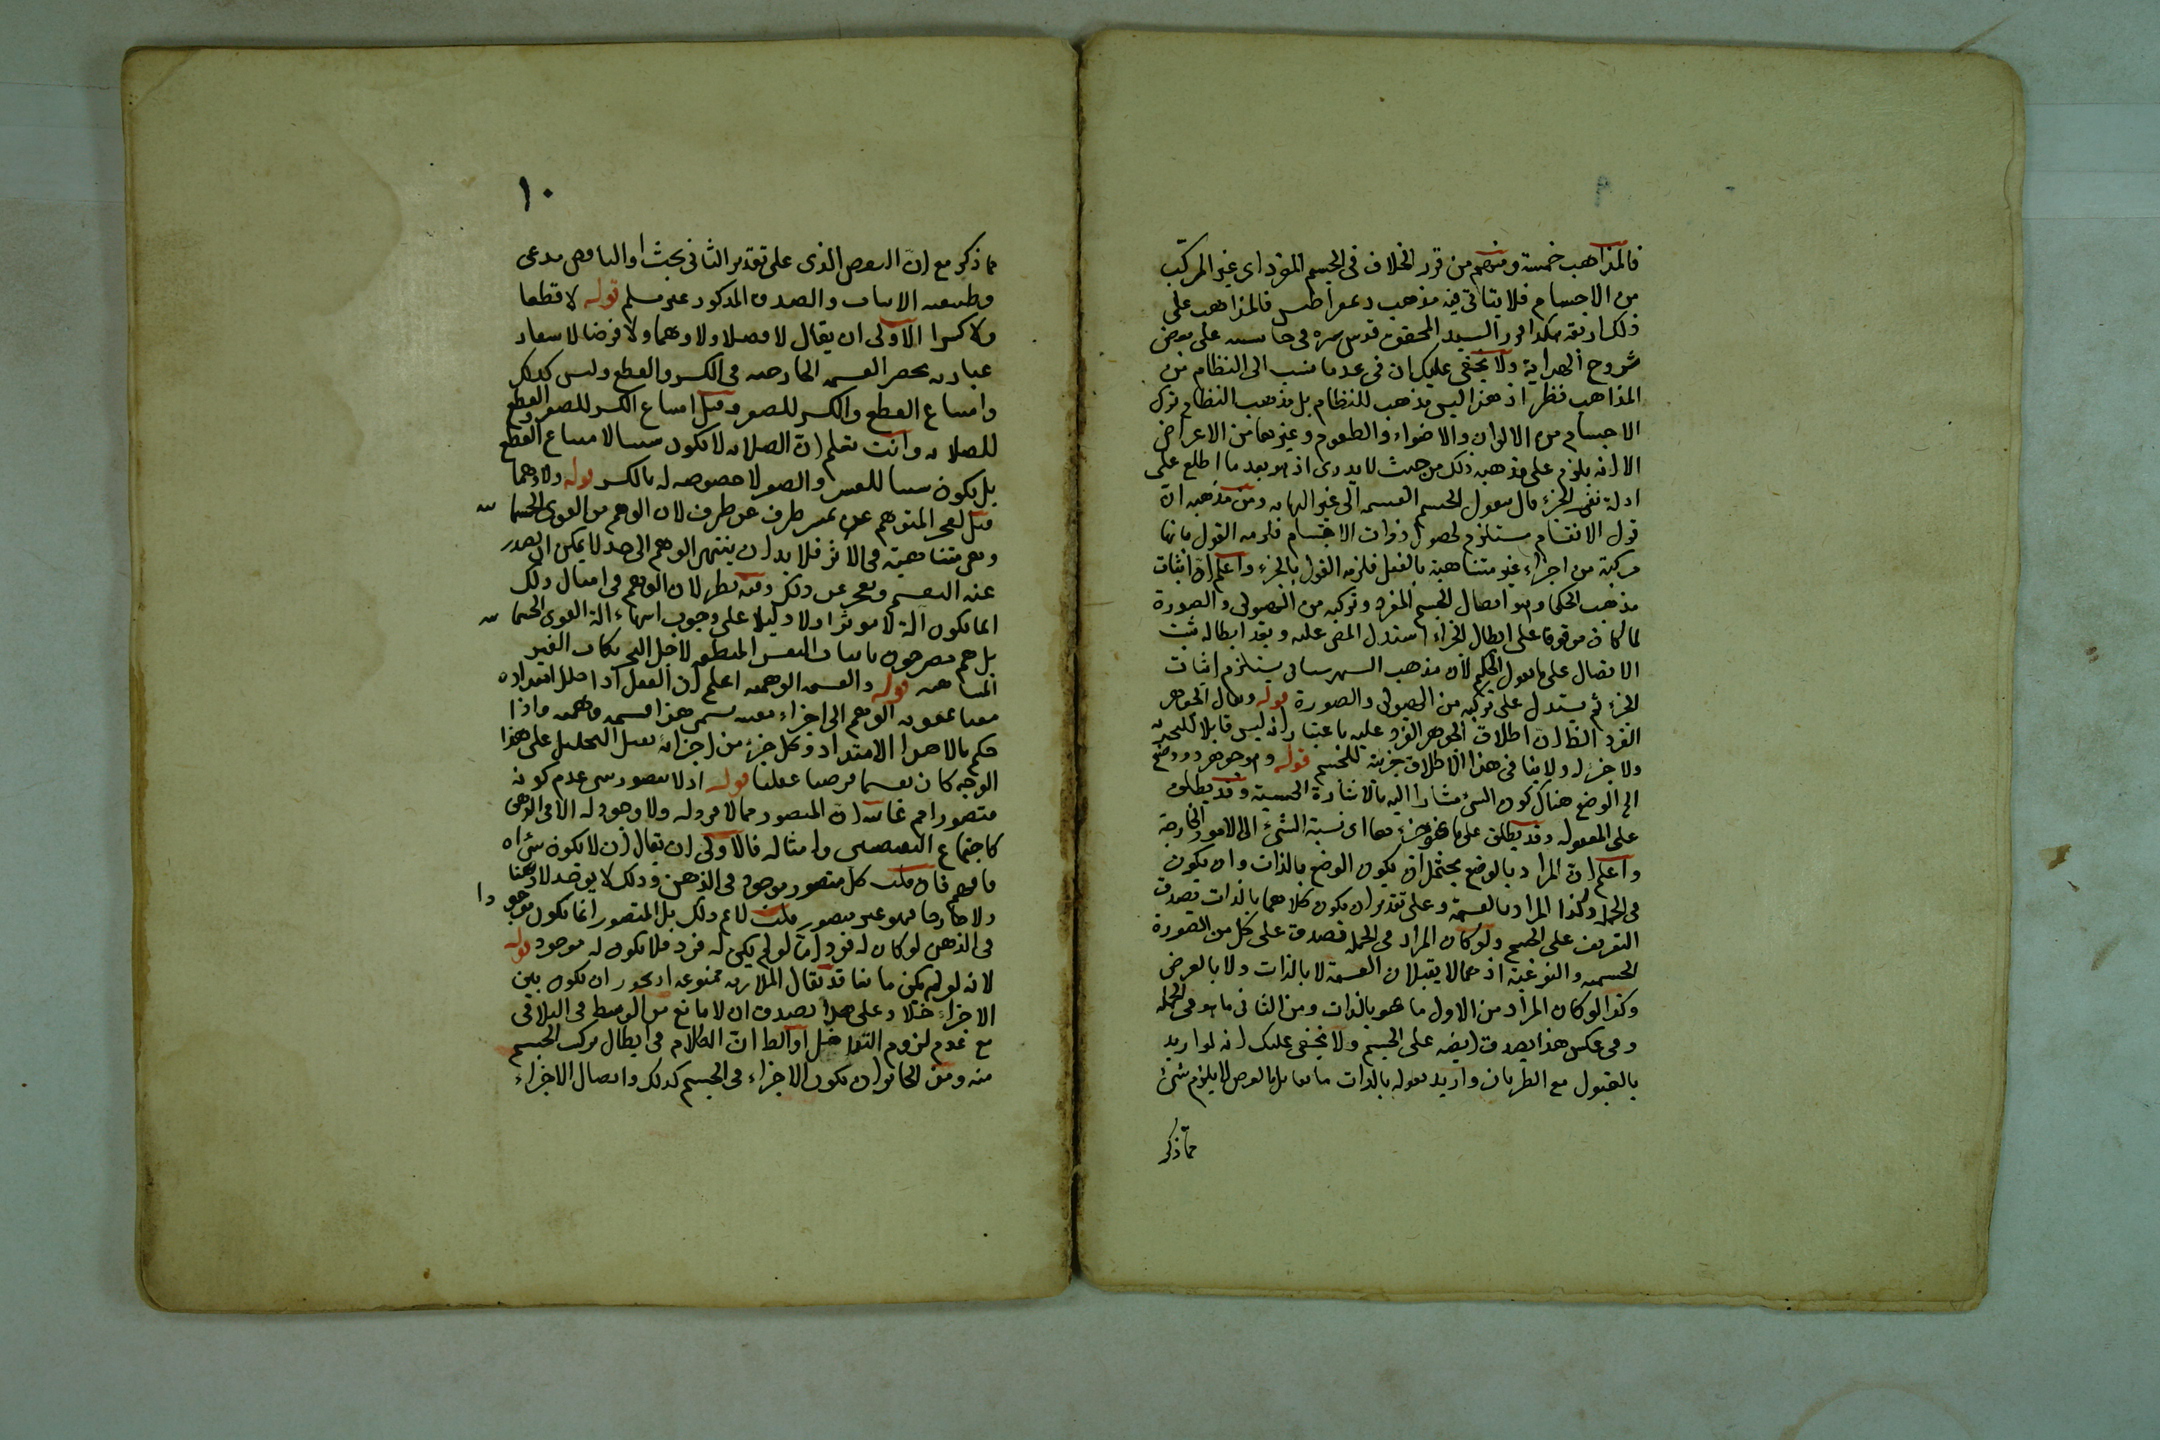 ٩
فالمذاهب خمسة ومنهم من قرر الخلاف في الجسم المفرد اي غير المركب
من الاجسام فلا يتأتى فيه مذهب ديمقراطيس فالمذاهب على
ذلك اربعة هكذا قرر السيد المحقق قدس سره في حاشيته على بعض
شروح الهداية ولا يخفى عليك ان في عد ما نسب الى النظام من
المذاهب نظرا اذ هذا ليس مذهب للنظام بل مذهب النظام تركب
الاجسام من الالوان والاضواء والطعوم وغيرها من الاعراض
الا انه يلزم على مذهبه ذلك من حيث لا يدري اذ هو بعد ما اطلع على
ادلة نفي الجزء قال بقبول الجسم القسمة الى غير النهاية ومن مذهبه ان
قبول الانقسام مستلزم لحصول ذوات الاقسام فلزمه القول بانها
مركبة من اجزاء غير متناهية بالفعل فلزمه القول بالجزء واعلم ان اثبات
مذهب الحكماء وهو اتصال الجسم المفرد وتركبه من الهيولى والصورة
لما كان موقوفا على ابطال الجزء استدل المص عليه وبعد ابطاله ثبت
الاتصال على ما يقول الحكيم لان مذهب الشهرستاني يستلزم اثبات
الجزء ثم يستدل على تركبه من الهيولى والصورة قوله ويقال الجوهر
الفرد الظ ان اطلاق الجوهر الفرد عليه باعتبار انه ليس قابلا للتجزية
ولا جزء له ولا ينافي هذا الاطلاق جزئيته للجسم قوله وهو جوهر ذو وضع
الخ الوضع هناك كون الشيء مشارا اليه بالاشارة الحسية وقد يطلق
على المقولة وقد يطلق على ما هو جزء منها اي نسبة الشيء الى الامور الخارجة
واعلم ان المراد بالوضع يحتمل ان يكون الوضع بالذات وان يكون
في الجملة وكذا المراد بالقسمة وعلى تقدير ان يكون كلاهما بالذات يصدق
التعريف على الجسم ولو كان المراد في الجملة فصدق على كل من الصورة
الجسمية والنوعية اذ هما لا يقبلان القسمة لا بالذات ولا بالعرض
وكذا لو كان المراد من الاول ما هو بالذات ومن الثاني ما هو في الجملة
وفي عكس هذا يصدق ايضه على الجسم ولا يخفى عليك انه لو اريد
بالقبول مع الطريان واريد بقوله بالذات ما يقابل بالعرض لا يلزم شيء
مما ذكر
١٠
مما ذكر مع ان النقض الذي على تقدير الثاني بحث اذ الناقض مدعي
وظيفته الاثبات والصدق المذكور غير مسلم قوله لا قطعا
ولا كسرا الاولى ان يقال لا فصلا ولا وهما ولا فرضا لاشعار
عبارته بحصر القسمة الخارجية في الكسر والقطع وليس كذلك
وامتناع القطع والكسر للصغر وقيل امتناع الكسر للصغر والقطع
للصلابة وانت تعلم ان الصلابة لا يكون سببا لامتناع القطع
بل يكون سببا للعسر والصغر لا خصوصية له بالكسر قوله ولا وهما
قيل لعجز المتوهم عن تمييز طرف عن طرف لان الوهم من القوى الجسمانية
وهي متناهية في الاثر فلا بد ان ينتهي الوهم الى حد لا يمكن ان يصدر
عنه التقسيم ويعجز عن ذلك وفيه نظر لان الوهم في امثال ذلك
انما يكون آلة لا مؤثرا ولا دليل على وجوب انتهاء آلة القوى الجسمانية
بل هم مصرحون باثبات النفس المنطبعة لاجل التحريكات الغير
المتناهية قوله والقسمة الوهمية اعلم ان العقل اذا حلل امتداده
معينا بمعونة الوهم الى اجزاء معينة سمي هذا قسمة وهمية واذا
حكم بان هذا الامتداد وكل جزء من اجزائه يقبل التحليل على هذا
الوجه كان تقسيما فرضيا عقليا قوله اذ لا يتصور شيء عدم كونه
متصورا مم غايته ان المتصور مما لا فرد له ولا وجود له الا في الذهن
كاجتماع النقيضين وامثاله فالاولى ان يقال ان لا يكون شيئا ه
فافهم فان قلت كل متصور موجود في الذهن وذلك لا يوجد لا ذهنا
ولا خارجا فهو غير متصور قلت لا نم ذلك بل المتصور انما يكون موجودا
في الذهن لو كان له فرد اما لو لم يكن له فرد فلا يكون له موجود قوله
لانه لو لم يكن مانعا قد يقال الملازمة ممنوعة اذ يجوز ان يكون بين
الاجزاء خلاء وعلى هذا يصدق ان لا مانع من الوسط في التلاقي
مع عدم لزوم التداخل اذ الظ ان الكلام في ابطال تركب الجسم
منه ومن الجائز ان يكون الاجزاء في الجسم كذلك واتصال الاجزاء